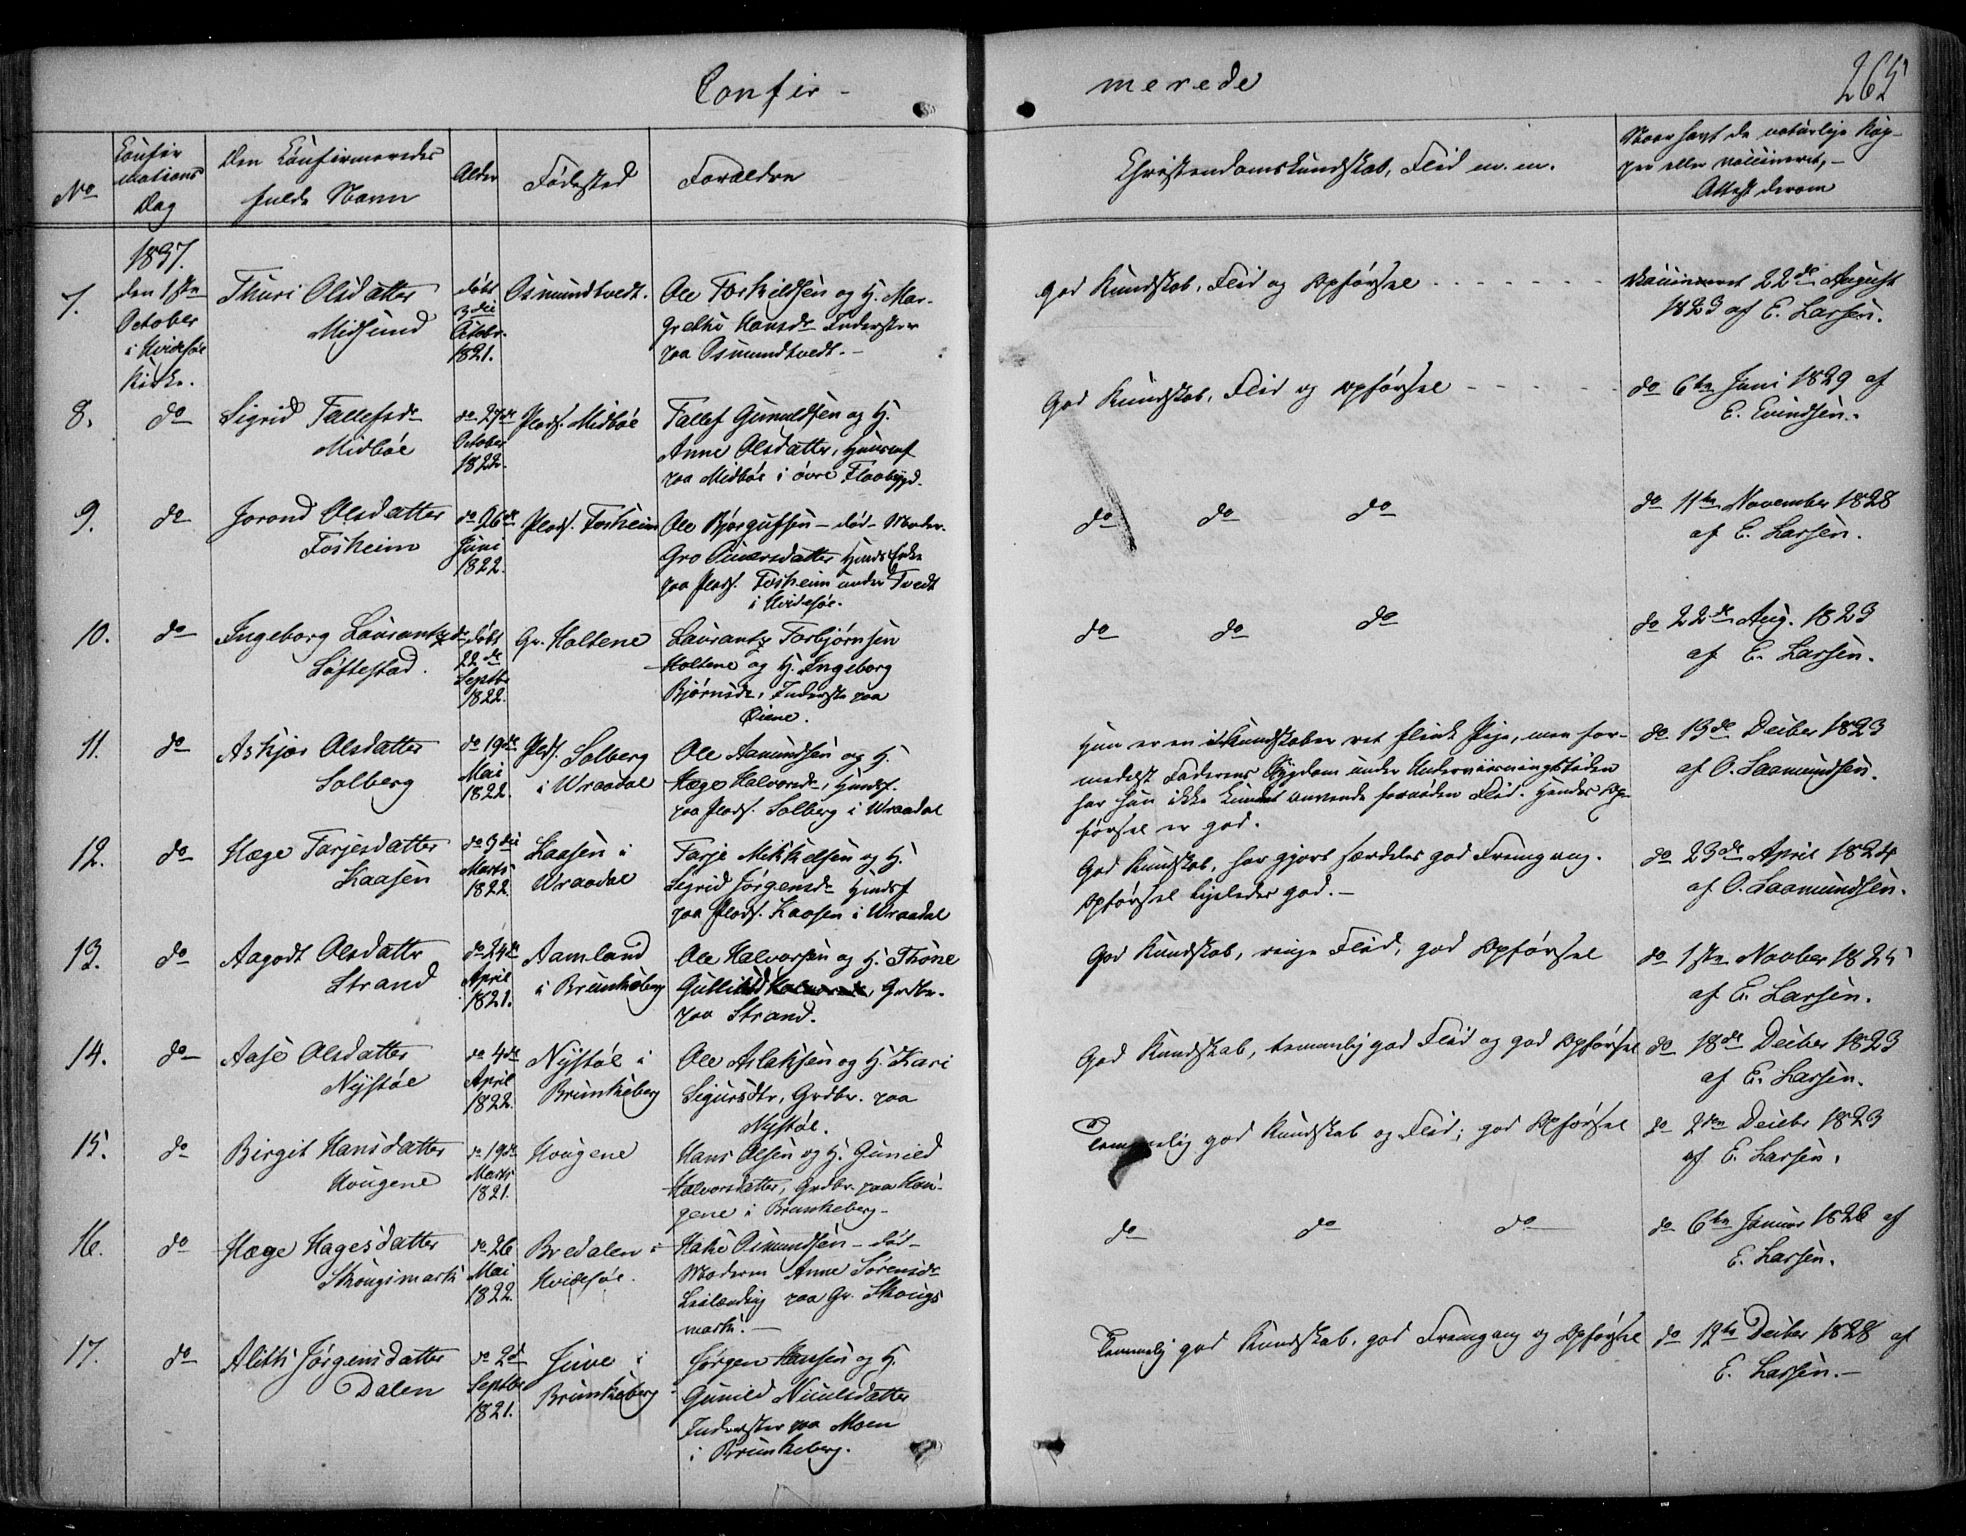 Confir- merede 265
No
Confirmations Dag
Den Confirmeredes fulde Navn
Alder
Fødested
Forældre
Christendomskundskab, Flid m.m.
Naar havt de naturlige Kopper eller vaccineret, Attest derom
1837.
7. den 1ste October i Hvidesøe Kirke.
Thuri Olsdatter Midsund
døbt 3die Octobr. 1821.
Osmundtvedt.
Ole Torkildsen og H. Margrethe Hansdr Inderster paa Osmundtvedt.
God Kundskab, Flid og Opførsel
Vaccineret 22de August 1823 af E. Larsen.
8. do
Sigrid Tallefsdr Midbøe
do 27de October 1822.
Plads. Midbøe
Tallef Gunuldsen og H. Anne Olsdatter, Huusmf paa Midbøe i øvre Flaabygd.
God Kundskab, Flid og Opførsel
do 6te Juni 1829 af E. Evindsen.
9. do
Jorond Olsdatter Fosheim
do 26de Juni 1822.
Plads. Fosheim
Ole Bjørgufsen - død - Moder. Gro Ounersdatter Huusm Enke paa Plads. Fosheim under Tvedt i Hvidesøe.
do do do
do 11te November 1828 af E. Larsen.
10. do
Ingeborg Laurantzdr Løftestad.
døbt 22de Septbr 1822.
Gr. Holtene
Laurantz Torbjørnsen Holtene og H. Ingeborg Bjørnsdr, Inderste paa Øiene.
do do do
do 22de Aug. 1823 af E. Larsen.
11. do
Askjær Olsdatter Solberg
do 19de Mai 1822.
Plds. Solberg i Wraadal
Ole Aamundsen og H. Hæge Halvorsdr, Huusf. paa Plads. Solberg i Wraadal
Hun er en i Kundskaber ret flink Pige, men formedelst Faderens Sygdom under Underviisningstiden har hun ikke kundet anvende fornøden Flid. Hendes Opførsel er god.
do 13de Decber 1823 af O. Laamundsen.
12. do
Hæge Tarjesdatter Kaasen
do 9die Marts 1822.
Kaasen i Wraadal
Tarje Mikkelsen og H. Sigrid Jørgensdr Huusf paa Plads. Kaasen i Wraadal
God Kundskab, har gjort særdeles god Fremgang. Opførsel ligeledes god.
do 23de April 1824 af O. Laamundsen.
13. do
Aagodt Olsdatter Strand
do 24de April 1821.
Aamland i Brunkeberg
Ole Halvorsen og H. Thone Grdbr. paa Strand.
God Kundskab, ringe Flid, god Opførsel
do 1ste Novber 1825 af E. Larsen.
14. do
Aase Olsdatter Nystøe
do 4de April 1822.
Nystøe i Brunkeberg
Ole Aslaksen og H. Kari Sigursdtr, Grdbr. paa Nystøe.
God Kundskab, temmelig god Flid og god Opførsel
do 18de Decber 1823 af E. Larsen.
15. do
Birgit Hansdatter Hougene
do 19de Marts 1821.
Hougene
Hans Olsen og H. Gunild Halvorsdatter, Grdbr. paa Hougene i Brunkeberg
Temmelig god Kundskab og Flid; god Opførsel
do 2den Decbr 1823 af E. Larsen.
16. do
Hæge Hagesdatter Skougsmark
do 26 Mai 1822.
Bredalen i Hvidesøe.
Hake Osmundsen - død - Moderen Anne Sørensdr Leilænding paa Gr. Skougsmark.
do do do
do 6te Januar 1826 af E. Larsen.
17. do
Alith Jørgensdatter Dalen
do 2d Septbr 1821.
Juve i Brunkeberg
Jørgen Hansen og H. Gunild Niculsdatter Inderster paa Moen i Brunkeberg.
Temmelig god Kundskab, god Fremgang og Opførsel
do 12te Decber 1828 af E. Larsen.